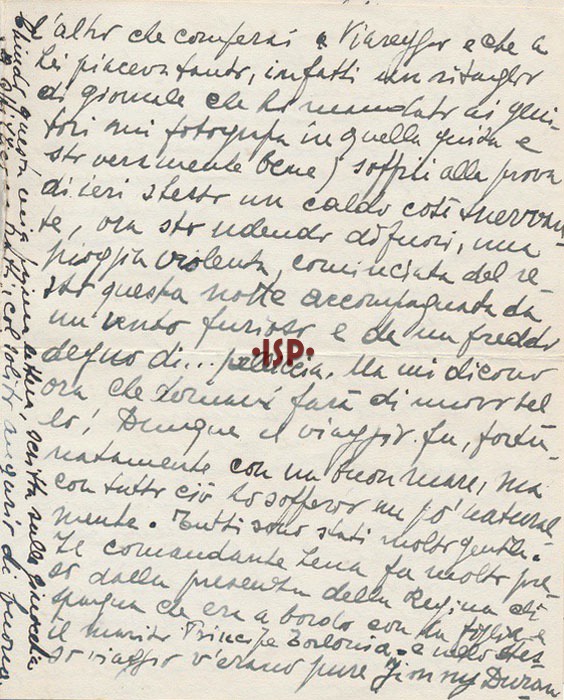 l'altro che comperai a Viareggio e che a
Lei piaceva tanto, infatti un ritaglio
di giornale che ho mandato ai geni-
tori mi fotografa in quella guisa e
sto veramente bene) soffrii alla prova
di ieri stesso un caldo così snervan-
te, ora sto udendo di fuori, una
pioggia violenta, cominciata del re-
sto questa notte accompagnata da
un vento furioso e da un freddo
degno di... pelliccia. Ma mi dicono
ora che domani farà di nuovo bel
lo! Dunque il viaggio fu, fortu-
natamente con un buon mare, ma
con tutto ciò ho sofferto un po' natural
mente. Tutti sono stati molto gentili.
Il comandante Lena fu molto pre-
so dalla presenza della Regina di
Spagna che era a bordo con la figlia e
il marito Principe Torlonia. e nello stes-
so viaggio v'erano pure Jimmy Duran
Chiudo questa mia prima lettera scritta sulle ginocchia
col solito augurio di buona
•ISP•